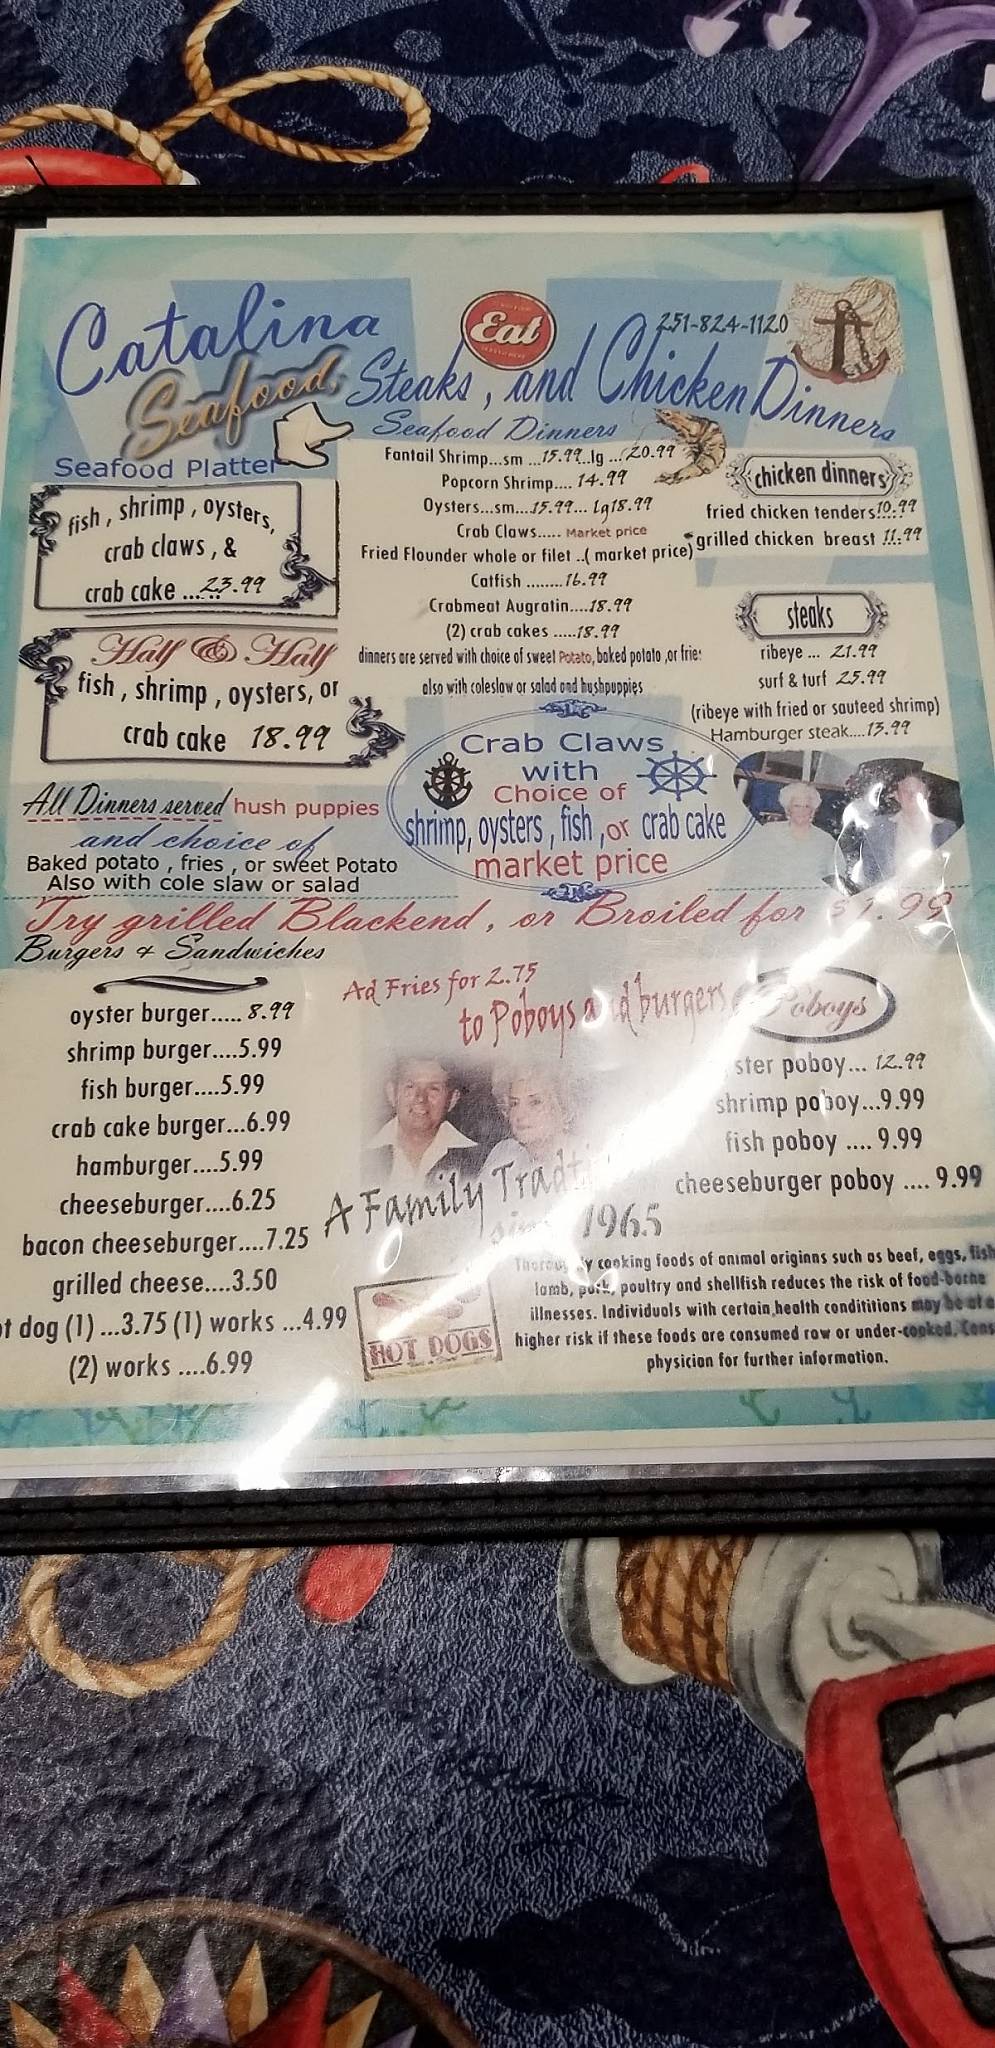 Catalina
Eat
251-824-1120
Seafood, Steaks, and Chicken Dinners
Seafood Platter
fish , shrimp , oysters,
crab claws , &
crab cake ...23.99
Half & Half
fish , shrimp , oysters, or
crab cake 18.99
All Dinners served hush puppies
and choice of
Baked potato , fries , or sweet Potato
Also with cole slaw or salad
Seafood Dinners
Fantail Shrimp...sm ...15.99..lg ...20.99
Popcorn Shrimp.... 14.99
Oysters...sm....15.99... Lg18.99
Crab Claws..... Market price
Fried Flounder whole or filet ..( market price)
Catfish ........16.99
Crabmeat Augratin....18.99
(2) crab cakes .....18.99
dinners are served with choice of sweet Potato, baked potato ,or fries
also with coleslaw or salad and hushpuppies
Crab Claws,
with
Choice of
shrimp, oysters , fish ,or crab cake
market price
chicken dinners
fried chicken tenders10.99
grilled chicken breast 11.99
steaks
ribeye ... 21.99
surf & turf 25.99
(ribeye with fried or sauteed shrimp)
Hamburger steak....13.99
Try grilled Blackend, or Broiled for $1.99
Burgers & Sandwiches
oyster burger..... 8.99
shrimp burger....5.99
fish burger....5.99
crab cake burger...6.99
hamburger....5.99
cheeseburger....6.25
bacon cheeseburger....7.25
grilled cheese....3.50
t dog (1) ...3.75 (1) works ...4.99
(2) works ....6.99
Ad Fries for 2.75
to Poboys and burgers
Poboys
ster poboy... 12.99
shrimp poboy...9.99
fish poboy .... 9.99
cheeseburger poboy .... 9.99
A Family Tradti
1965
HOT DOGS
Thoroughly cooking foods of animal originns such as beef, eggs, fish
lamb, pork, poultry and shellfish reduces the risk of food-borne
illnesses. Individuals with certain,health condititions may be at a
higher risk if these foods are consumed raw or under-cooked. Cons
physician for further information.